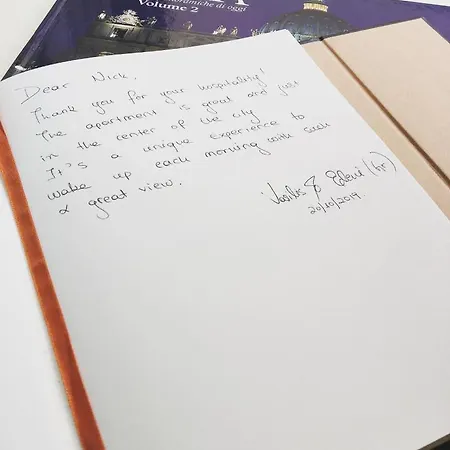 oramiche di oggi
Volume 2
Dear Nick,
Thank you for your hospitality!
The apartment is great and just
in the center of the city
It's a unique experience to
wake up each morning with such
a great view.
&
20/10/2019